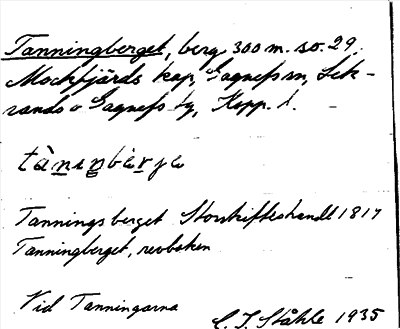 Tanningberget, berg 300 m. so. 29,
Mockfjärds kap, Gagnefs sn, Lek-
sands o Gagnefs tg, Kopp. l.
tànɪnbærjə
Tannings berget Storskifteshandl 1817
Tanningberget, revboken
Vid Tanningarna
C. I. Ståhle 1935